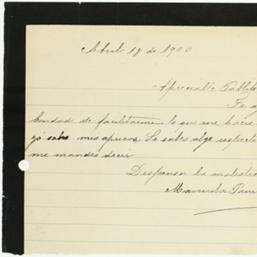 Abril 18 de 1900
Apreciable Pablito
bondad de facilitarme lo que me hace
mis apuros. Lo sobre algo respecto
me mandes decir
Dispensa la molestia
Manuela